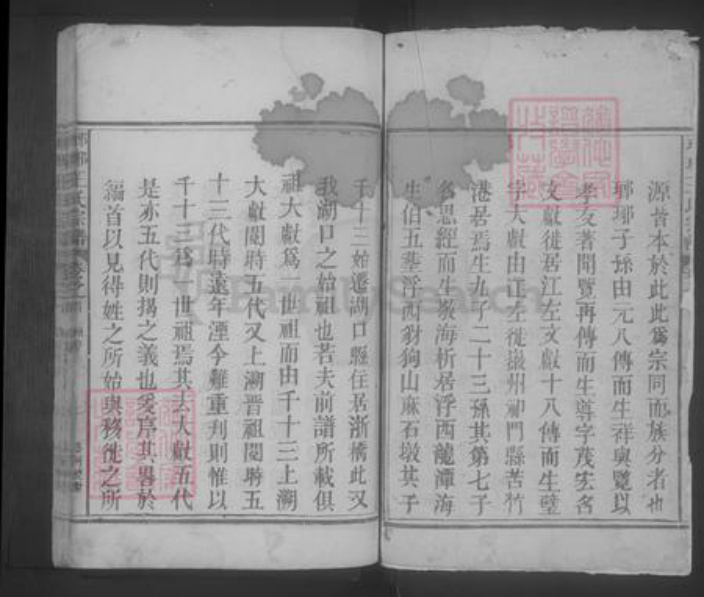 源者本於此此為宗同而族分者也
瑯琊子孫由元八傳而生祥與覽以
孝友著聞覽再傳而生導字茂宏名
文獻徙居江左文獻十八傳而生璧
字大獻由江左徙嚴州祁門縣苦竹
港居焉生九子二十三孫其第七子
名思經而生敬海析居浮西龍潭海
生伯五葬浮西豺狗山麻石墩其子
千十三始遷湖口縣住居浙橋此又
我湖口之始祖也若夫前譜所載俱
祖大獻為一世祖而由千十三上溯
大獻閱時五代又上溯晋祖閱時五
十三代時遠年湮今難重刋則惟以
千十三為一世祖焉其去大獻五代
是亦五代則揭之義也爰序其畧於
編首以見得姓之所始與移徙之所
王氏宗譜
FamilySearch